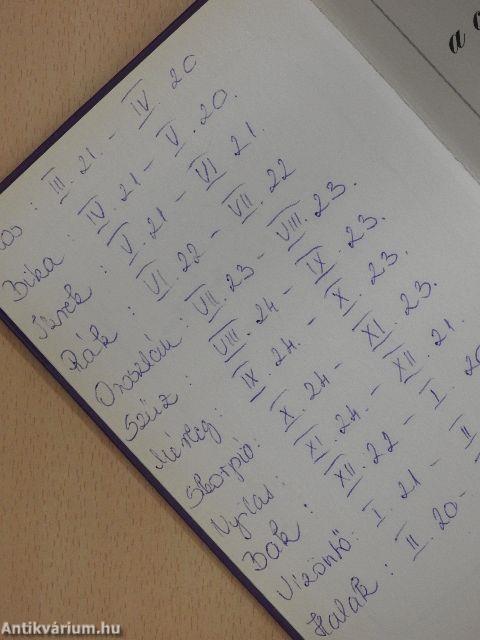 os: III. 21. - IV. 20
Bika: IV. 21 - V. 20.
Ikrek: V. 21 - VI 21.
Rák: VI. 22 - VII. 22
Oroszlán: VII. 23 - VIII. 23.
Szűz: VIII. 24 - IX. 23.
Mérleg: IX 24. - X. 23.
Skorpió: X. 24 - XI. 23.
Nyilas: XI. 24. - XII. 21.
Bak: XII. 22 - I. 20
Vízöntő: I. 21 - II
Halak: II. 20 -
a
Antikvárium.hu